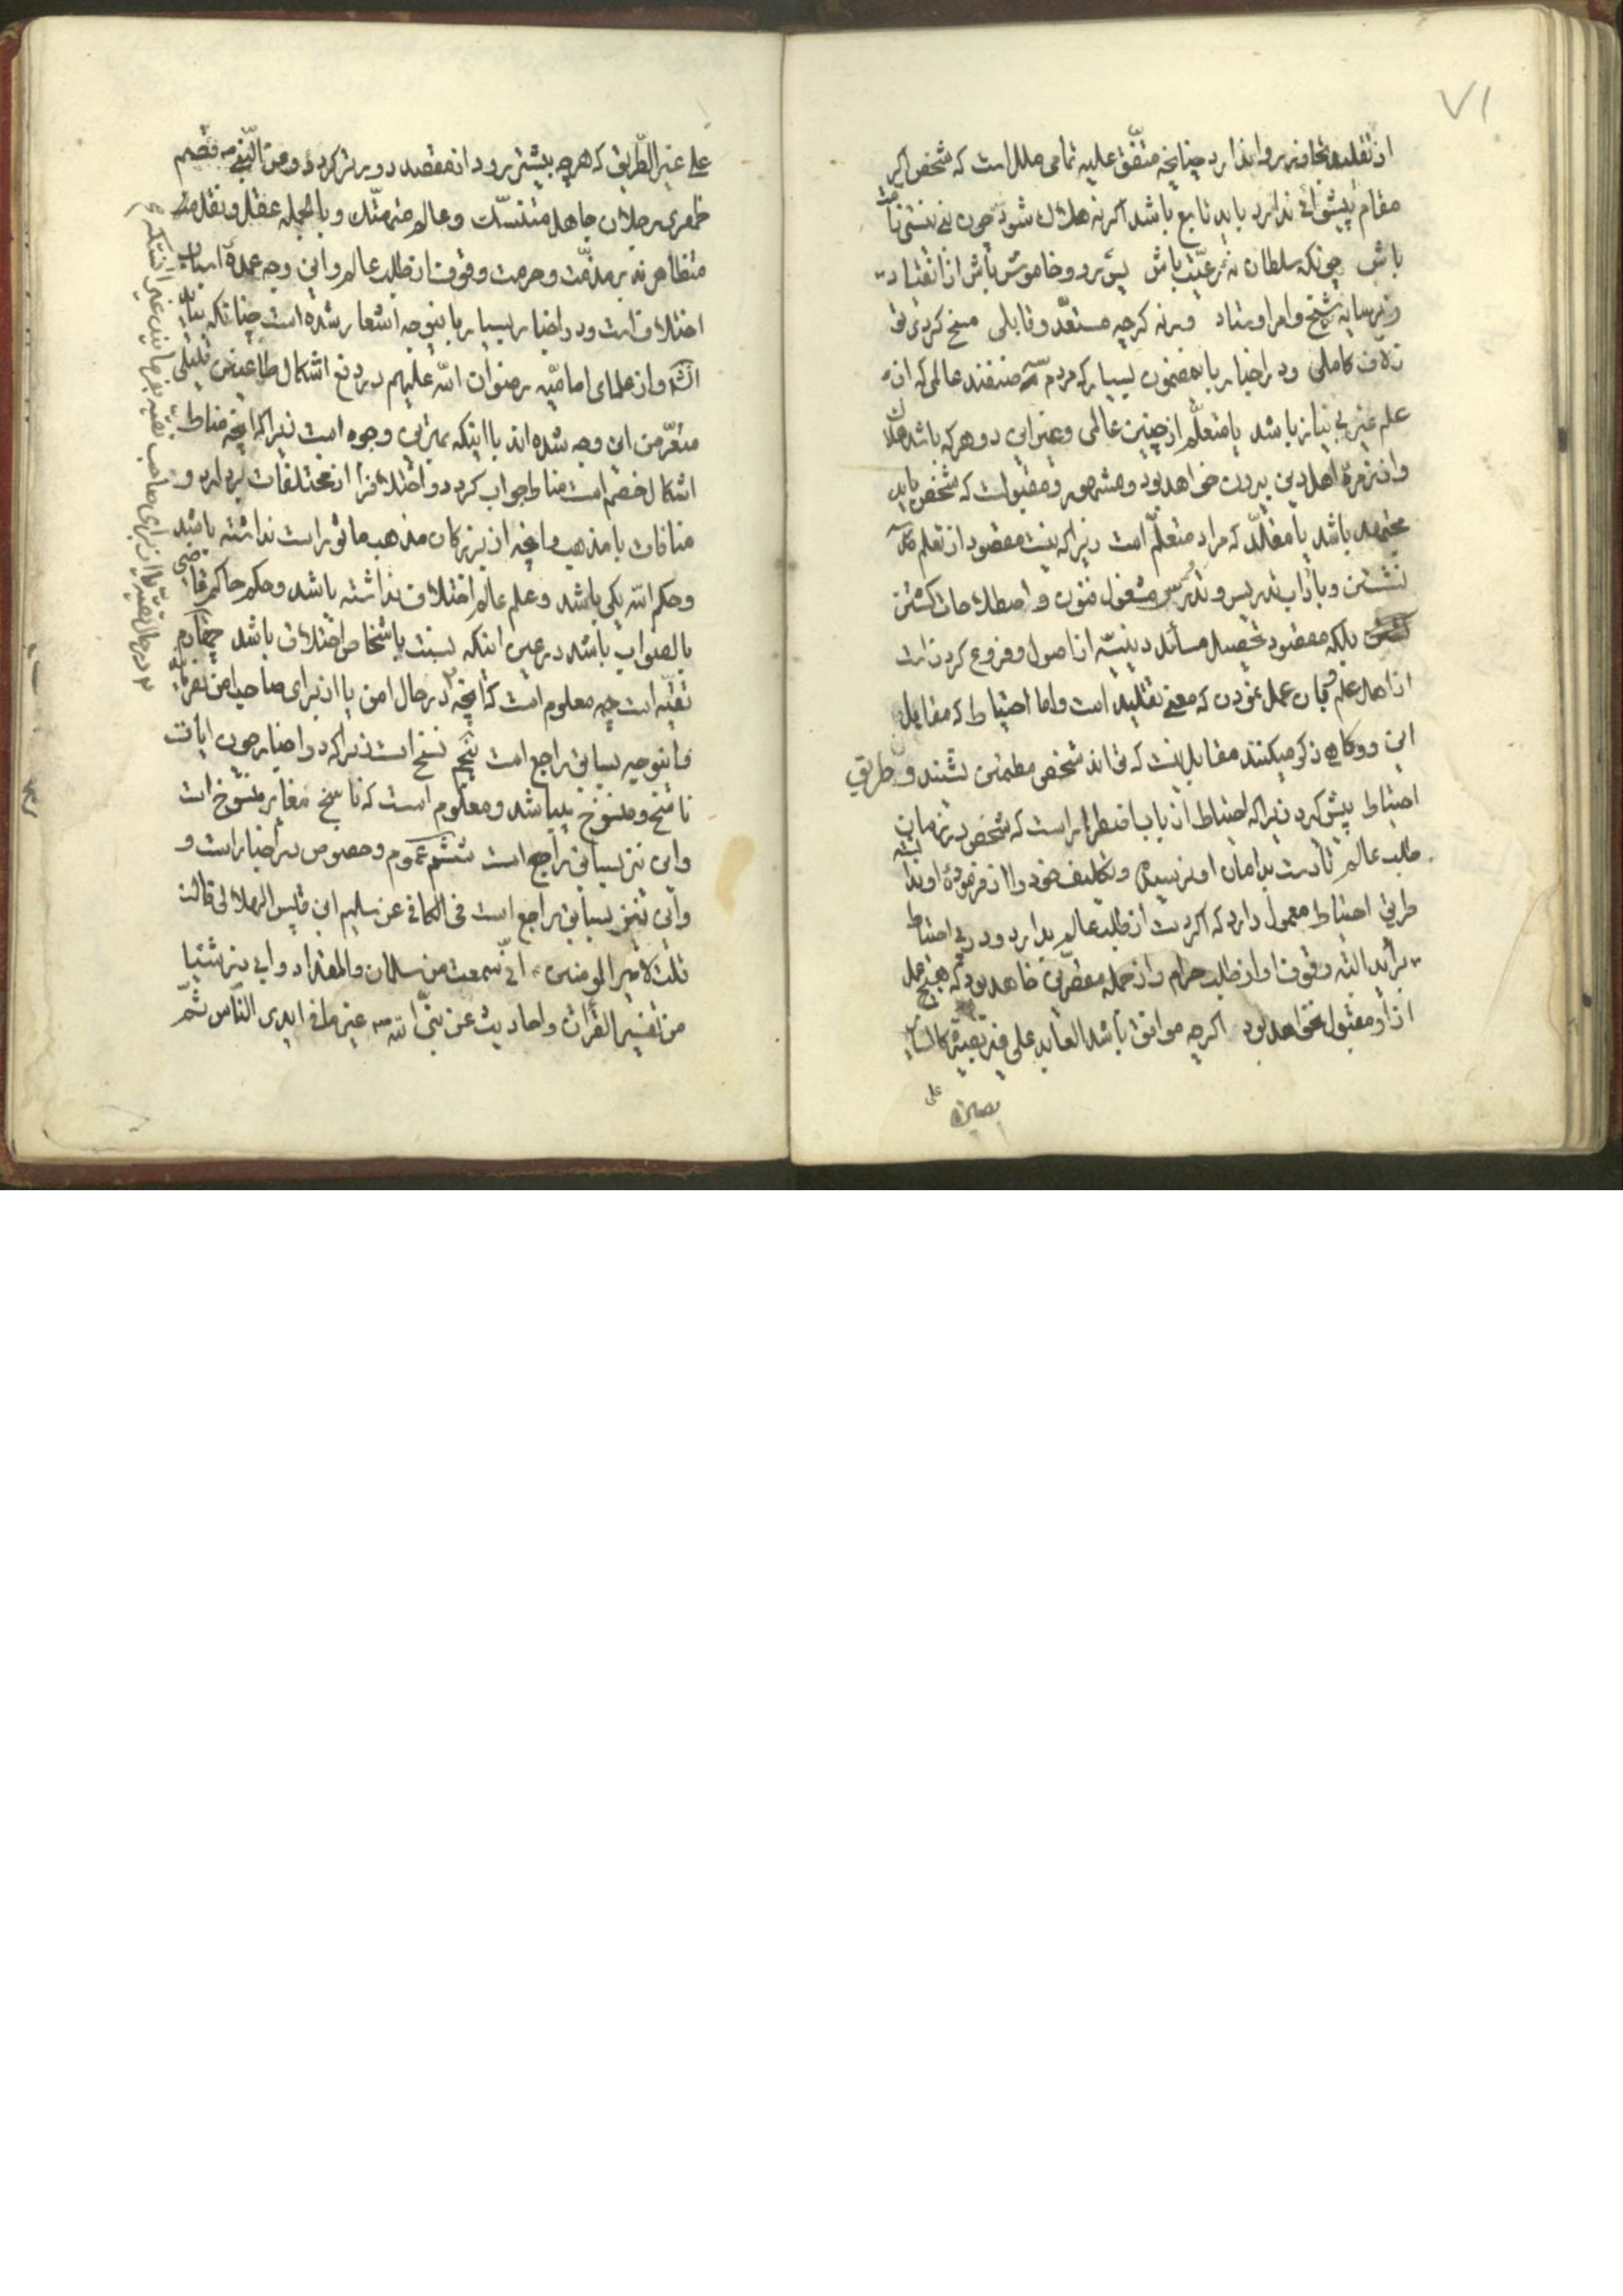 ۷۱
از تقلید تجاوز بر روا ندارد چنانچه متّفق علیه تمامی ملل است که شخص اگر
مقام پیشوائی ندارد باید تابع باشد اگرنه هلاک شود چون نئی امّت
باش چونکه سلطان نه رعیّت باش پس برو و خاموش باش از انقیاد
زیر سایه شیخ و امر اوستاد ورنه کرچه مستعدّ و قابلی مسخ کردی تو
ز لاف کاملی و در اخبار باین مضمون بسیار که مردم سه صنفند عالمی که از
علم غیر بی نیاز باشد یا متعلّم از چنین عالمی و غیر این دو هرکه باشد هلاک
و از زمرهٔ اهل دین بیرون خواهد بود و مشهور و مقبول است که شخص باید
مجتهد باشد یا مقلّد که مراد متعلّم است زیراکه نیست مقصود از تعلّم
نشستن و باداب تدریس و تدرس مشغول فنون و اصطلاحات کشتن
بلکه مقصود تحصیل مسائل دینیّه از اصول و فروع کردن است
از اهل علم و بان عمل نمودن که معنی تقلید است و اما احتیاط که مقابل
این دو کاهی ذکر میکنند مقابل نیست که تواند شخص مطمئن نشیند و طریق
احتیاط پیش گیرد زیراکه احتیاط از باب اضطرار است که شخص در زمان
طلب عالم تا دست بدامان او نرسیده و تکلیف خود را از فرموده او ندانسته
طریق احتیاط معمول دارد که اگر دست از طلب عالم بدارد و در پی احتیاط
برآید البته وقوف او از طلب حرام و از جمله مقصرین خواهد بود که هیچ عمل
از او مقبول نخواهد بود اگرچه موافق باشد العامل علی غیر بصیرة کالسایر
علی
بصیرة
علی غیر الطریق که هرچه بیشتر برود از مقصد دورتر کردد و من النّبی ص قصم
ظهری رجلان جاهل متنسّک و عالم متهتّک و بالجمله عقل و نقل
متظاهرند بر مذمّت و حرمت وقوف از طلب عالم و این وجه عمدهٔ اسباب
اختلاف است و در اخبار بسیار باین وجه اشعار شده است چنانکه بیاید
انشاء الله و از علمای امامیّه رضوان الله علیهم در دفع اشکال طاعنین قلیلی
متعرّض این وجه شده اند با اینکه بهترین وجوه است زیراکه انچه مناط
اشکال خصم است مناط جواب کردد و اختلاف را از مختلفات بردارد و
منافات با مذهب و انچه از بزرکان مذهب ماثور است نداشته باشد
و حکم الله یکی باشد و علم عالم اختلاف نداشته باشد و حکم حاکم قاضی
بالصواب باشد در عین اینکه نسبت باشخاص اختلاف باشد چهارم
تقیّه است چه معلوم است که انچه در حال امن یا از برای صاحب امن بفرمایند
و این وجه بسابق راجع است پنجم نسخ است زیراکه در اخبار چون ایات
ناسخ و منسوخ میباشد و معلوم است که ناسخ مغایر منسوخ است
و این نیز بسابق راجع است ششم عموم و خصوص در اخبار است و
و این نیز بسابق راجع است فی الکافی عن سلیم ابن قیس الهلالی قال
قلت لامیر المومنین ع انّی سمعت من سلمان و المقداد و ابی ذر شیئا
من تفسیر القران و احادیث عن نبیّ الله ص غیر ما فی ایدی النّاس ثمّ
در حال تقیّه یا از برای صاحب تقیّه بفرمایند غیر انستکه